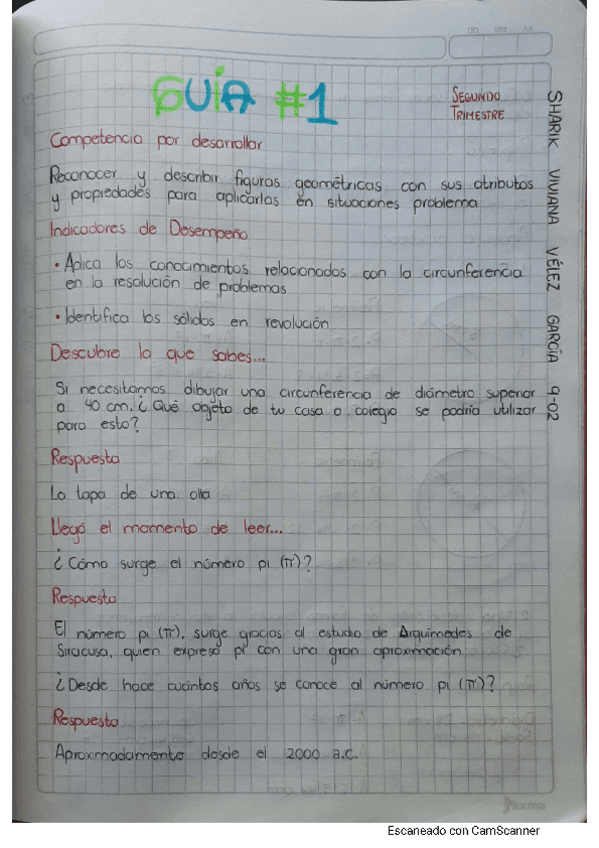 GUiA #1
SEGUNDO
TRIMESTRE
SHARIK VIVIANA VÉLEZ GARCÍA 9-02
Competencia por desarrollar
Reconocer y describir figuras geométricas con sus atributos
y propiedades para aplicarlas en situaciones problema
Indicadores de Desempeño
• Aplica los conocimientos relacionados con la circunferencia
en la resolución de problemas
• Identifica los sólidos en revolución
Descubre lo que sabes...
Si necesitamos dibujar una circunferencia de diámetro superior
a 40 cm. ¿Qué objeto de tu casa o colegio se podría utilizar
para esto?
Respuesta
La tapa de una olla
Llegó el momento de leer...
¿Cómo surge el número pi (π)?
Respuesta
El número pi (π), surge gracias al estudio de Arquímedes de
Siracusa, quien expresó pi con una gran aproximación
¿Desde hace cuántos años se conoce al número pi (π)?
Respuesta
Aproximadamente desde el 2000 a.c.
Norma
Escaneado con CamScanner